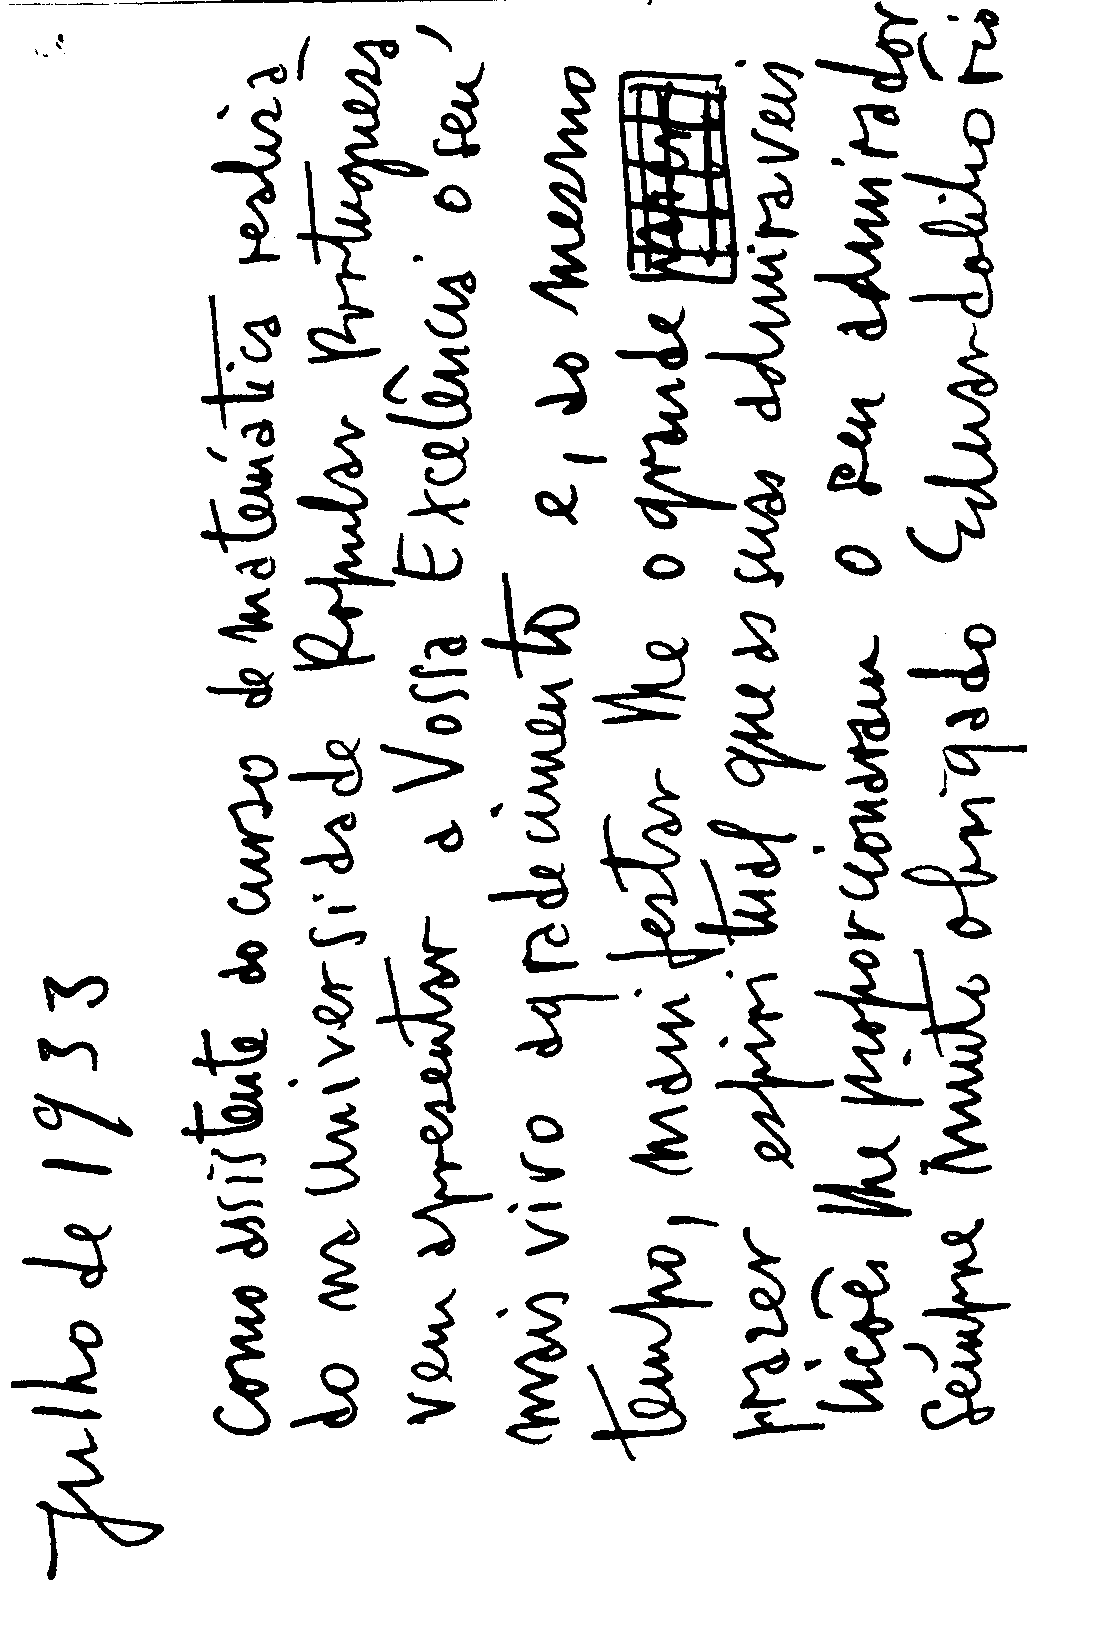 Julho de 1933
Como assistente do curso de matemática realisa-
do na Universidade Popular Portuguesa,
vem apresentar a Vossa Excelência o seu
mais vivo agradecimento e, do mesmo
tempo, manifestar-lhe o grande
prazer espiritual que as suas admiráveis
lições lhe proporcionaram o seu admirador
Sempre muito obrigado